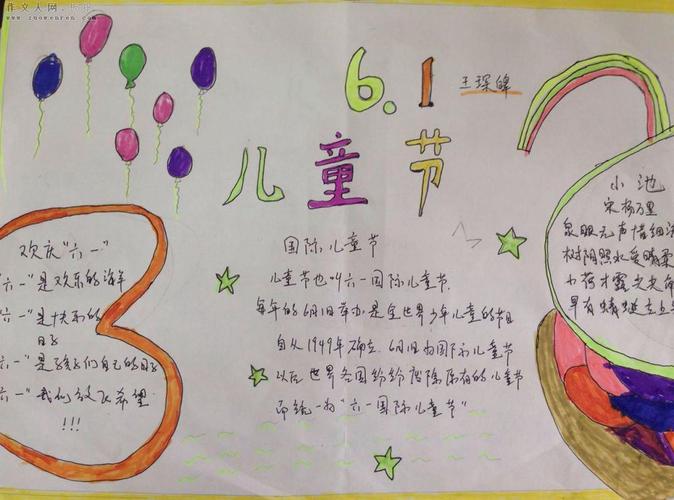 作文人网
www.zuowenren.com
6.1
儿童节
欢庆"六一"
六一"是欢乐的海洋
六一"是快乐的
日子
六一"是孩子们自己的日子
六一"我们放飞希望
!!!
国际儿童节
儿童节也叫六一国际儿童节,
每年的6月1日举办是全世界少年儿童的节日
自从1949年确立6月1日为国际儿童节
以后世界各国纷纷废除原有的儿童节
而统一为"六一国际儿童节"
小池
宋杨万里
泉眼无声惜细流
树阴照水爱晴柔
小荷才露尖尖角
早有蜻蜓立上